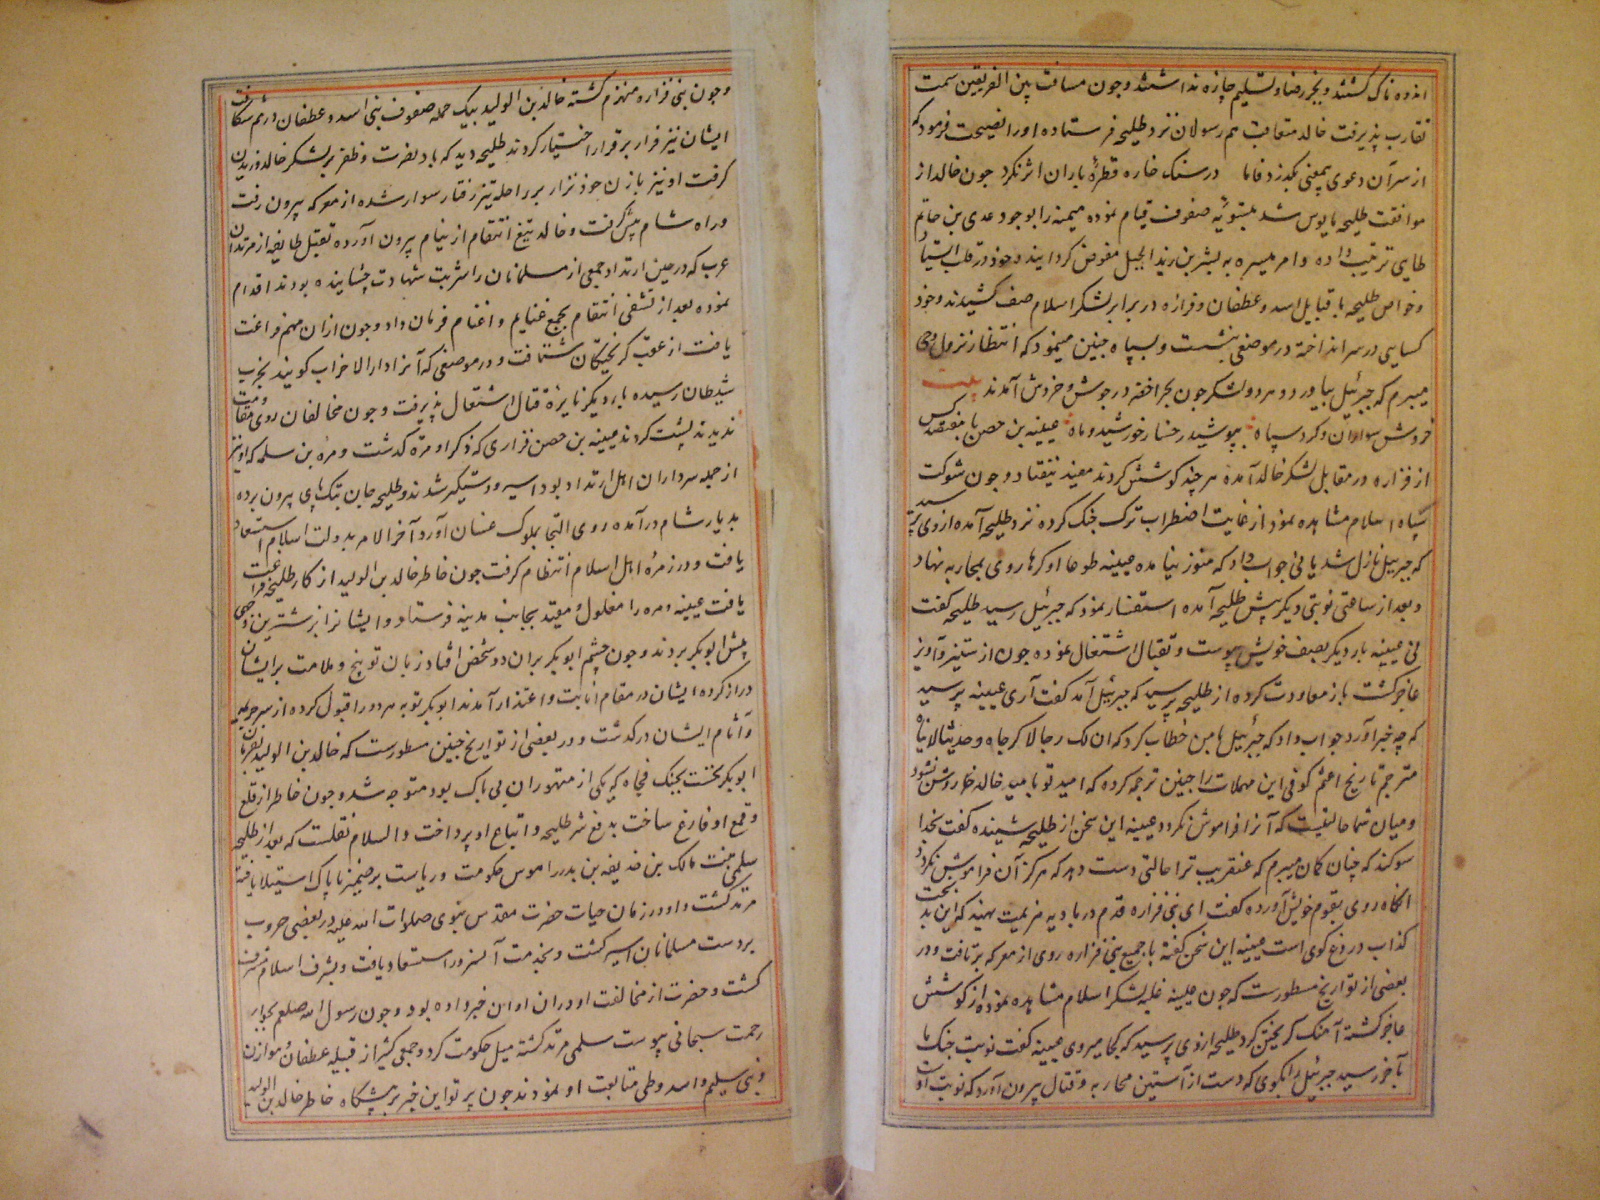 اندوهناک گشتند و بجز رضا و تسلیم چاره نداشتند و چون مسافت بین الفریقین سمت
تقارب پذیرفت خالد متعاقب هم رسولان نزد طلیحه فرستاده او را نصیحت فرمود که
از سر آن دعوی بیمعنی بکذرد فاما در سنک خاره قطرهٔ باران اثر نکرد چون خالد از
موافقت طلیحه مایوس شد بتسویهٔ صفوف قیام نموده میمنه را بوجود عدی بن حاتم
طایی ترتیب داده و امر میسره به بشر بن زید الخیل مفوض کردانید و خود در قلب ایستاد
و خواص طلیحه با قبایل اسد و غطفان و فزاره در برابر لشکر اسلام صف کشیدند و خود
کسایی در سر انداخته در موضعی بنشست و بسپاه چنین مینمود که انتظار نزول وحی
میبرم که جبرئیل بیاورد و هر دو لشکر چون بحر اخضر در جوش و خروش آمدند بیت
خروش سواران و کرد سپاه بپوشید رخسار خورشید و ماه عیینه بن حصن با هفتصد کس
از فزاره در مقابل لشکر خالد آمده هر چند کوشش کردند مفید نیفتاد و چون شوکت
سپاه اسلام مشاهده نمود از غایت اضطراب ترک جنک کرده نزد طلیحه آمده از وی پرسید
که جبرئیل نازل شد یا نی جواب داد که هنوز نیامده عیینه طوعا او کرها روی بمحاربه نهاد
و بعد از ساعتی نوبتی دیکر پیش طلیحه آمده استفسار نمود که جبرئیل رسید طلیحه کفت
نی عیینه بار دیکر بصف خویش پیوست و بقتال اشتغال نموده چون از ستیز و آویز
عاجز کشت باز معاودت کرده از طلیحه پرسید که جبرئیل آمد کفت آری عیینه پرسید
که چه خبر آورد جواب داد که جبرئیل با من خطاب کرد که ان لک رجا لا کرجاه و حدیثا لا ینساه
مترجم تاریخ اعثم کوفی این مهملات را چنین ترجمه کرده که امید تو بامید خالد خاروش نشود
و میان شما حالتیست که آنرا فراموش نکردد عیینه این سخن از طلیحه شنیده کفت بخدا
سوکند که چنان کمان میبرم که عنقریب ترا حالتی دست دهد که هرکز آن فراموش نکردد
انکاه روی بقوم خویش آورده کفت ای بنی فزاره قدم در بادیه هزیمت بنهید که این بدبخت
کذاب دروغ کوی است عیینه این سخن کفته با جمیع بنی فزاره روی از معرکه برتافت و در
بعضی از تواریخ مسطورست که چون عیینه غلبه لشکر اسلام مشاهده نموده از کوشش
عاجز کشته آهنک کریختن کرد طلیحه از وی پرسید که کجا میروی عیینه کفت نوبت جنک ما
بآخر رسید جبرئیل را بکوی که دست از آستین محاربه و قتال بیرون آورد که نوبت اوست
و چون بنی فزاره منهزم کشته خالد بن الولید بیک حمله صفوف بنی اسد و غطفان در هم شکافت
ایشان نیز فرار بر قرار اختیار کردند طلیحه دید که باد نصرت و ظفر بر لشکر خالد وزیدن
کرفت او نیز با زن خود نزار بر راحله تیز رفتار سوار شده از معرکه بیرون رفت
و راه شام پیش کرفت و خالد تیغ انتقام از نیام بیرون آورده بقتل طایفه از مرتدان
عرب که در حین ارتداد جمعی از مسلمانان را شربت شهادت چشانیده بودند اقدام
نموده بعد از تشفی انتقام بجمع غنایم و اغنام فرمان داد و چون از ان مهم فراغت
یافت از عقب کریختکان شتافت و در موضعی که آنرا دار الاحزاب کویند بحزب
شیطان رسیده بار دیکر نایره قتال اشتعال پذیرفت و چون مخالفان روی مقاومت
ندیدند پشت کردند عیینه بن حصن فزاری که ذکر او مرّة کذشت و مره بن سلمه که او نیز
از جمله سرداران اهل ارتداد بود اسیر و دستکیر شدند و طلیحه جان بتک پای بیرون برده
بدیار شام درآمده روی التجا بملوک غسان آورد آخر الامر بدولت اسلام استسعاد
یافت و در زمرهٔ اهل اسلام انتظام کرفت چون خاطر خالد بن الولید از کار طلیحه فراغت
یافت عیینه و مره را مغلول و مقید بجانب مدینه فرستاد و ایشانرا بزشترین وجهی
پیش ابوبکر بردند و چون چشم ابوبکر بران دو شخص افتاد زبان توبیخ و ملامت بر ایشان
دراز کرده ایشان در مقام انابت و اعتذار آمدند ابوبکر توبه هر دو را قبول کرده از سر جرایم
و آثام ایشان درکذشت و در بعضی از تواریخ چنین مسطورست که خالد بن الولید بفرمان
ابوبکر نخست بجنک فجاه که یکی از متهوران بی باک بود متوجه شد و چون خاطر از قلع
و قمع او فارغ ساخت بدفع شر طلیحه و اتباع او پرداخت والسلام نقلست که بعد از طلیحه
سلمی بنت مالک بن حذیفه بن بدر را هوس حکومت و ریاست بر ضمیر ناپاک استیلا یافته
مرتد کشت و او در زمان حیات حضرت مقدس نبوی صلوات الله علیه در بعضی حروب
بر دست مسلمانان اسیر کشت و بخدمت آنسرور استسعاد یافت و بشرف اسلام مشرف
کشت و حضرت از مخالفت او دران اوان خبر داده بود و چون رسول الله صلعم بجوار
رحمت سبحانی پیوست سلمی مرتد کشته میل حکومت کرد و جمعی کثیر از قبیله غطفان و هوازن
و بنی سلیم و اسد و طی متابعت او نمودند چون پرتو این خبر بر پیشکاه خاطر خالد بن الولید